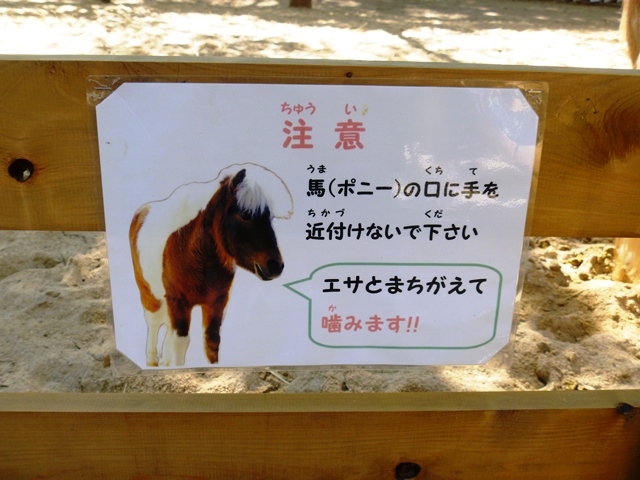 ちゅう い
注 意
うま くち て
馬(ポニー)の口に手を
ちかづ くだ
近付けないで下さい
エサとまちがえて
か
噛みます!!